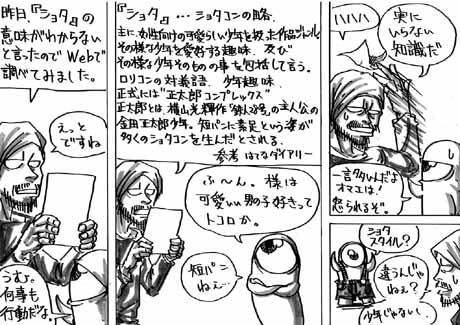 昨日、『ショタ』の
意味がわからない
と言ったのでWebで
調べてみました。
えっと
ですね
うむ。
何事も
行動だな。
『ショタ』…ショタコンの略。
主に、女性向けの可愛らしい少年を扱った作品ジャンル
その様な少年を愛好する趣味、及び
その様な少年そのものの事を包括して言う。
ロリコンの対義語、少年趣味。
正式には"正太郎コンプレックス"
正太郎とは、横山光輝作「鉄人28号」の主人公の
金田正太郎少年。短パンに素足という姿が
多くのショタコンを生んだとされる。
参考 はてなダイアリー
ふ〜ん。様は
可愛い男の子好きって
トコロか。
短パン
ねぇ…
ハハハ
実に
いらない
知識だ
一言多いんだよ
オマエは!
怒られるぞ。
ショタ
スタイル?
違うんじゃ
ねぇ?
少年じゃないし。